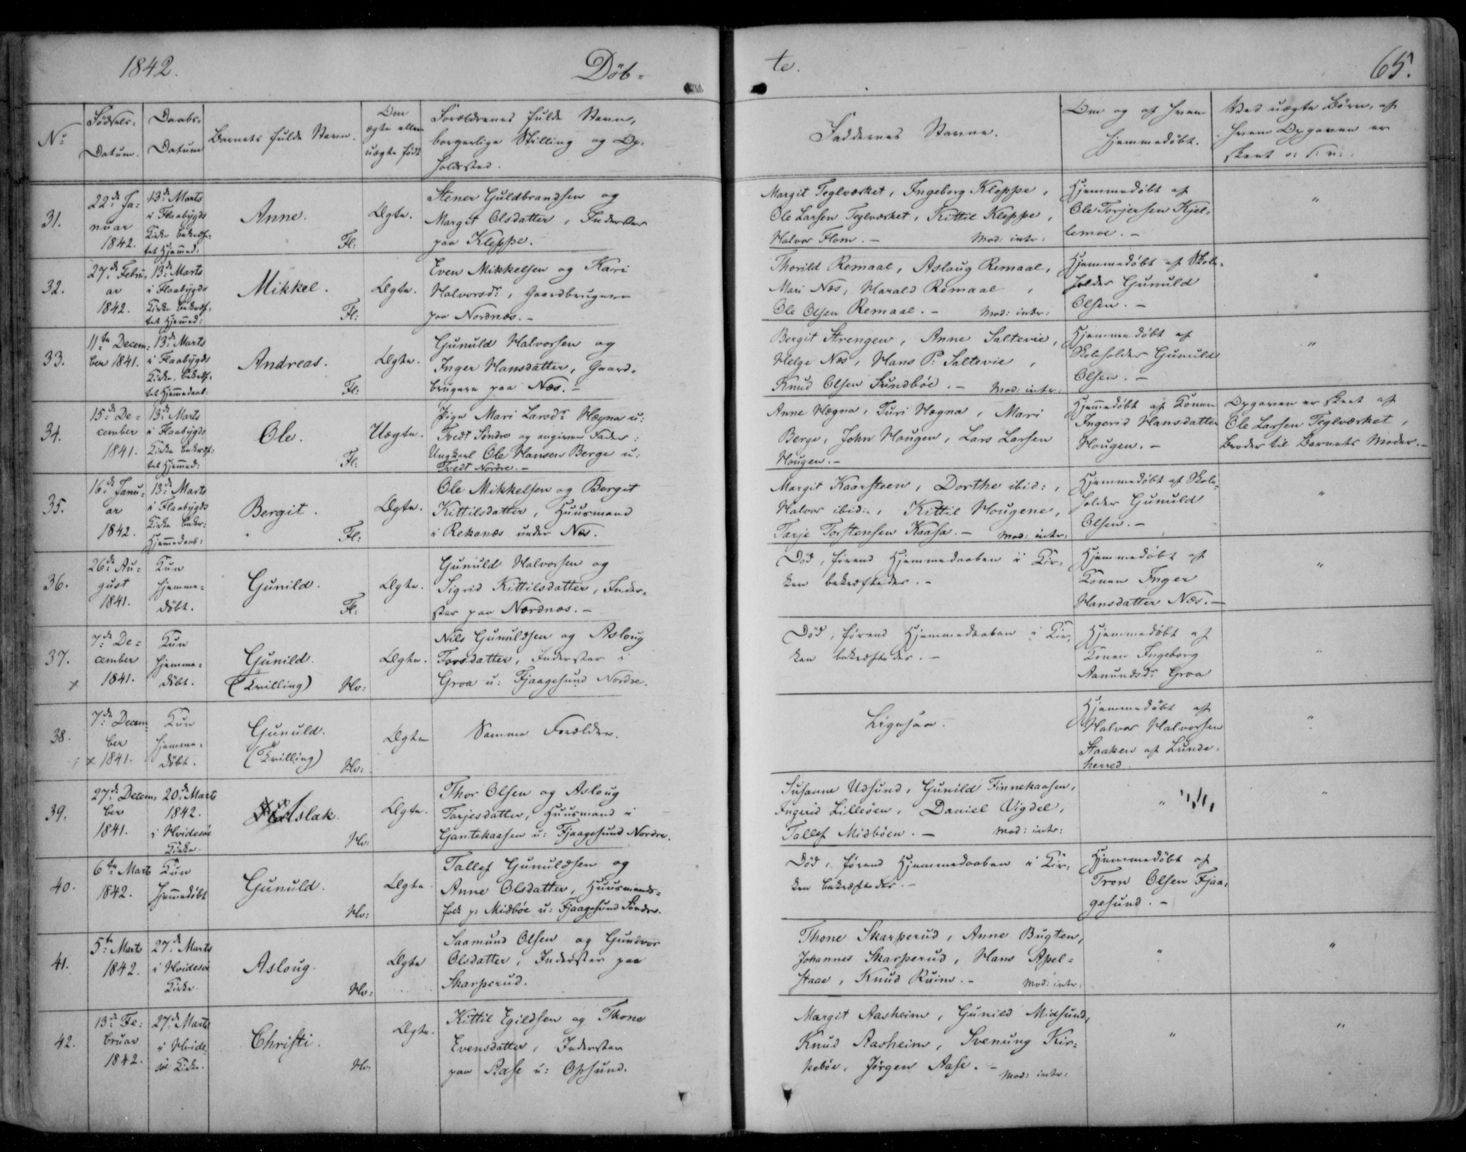 1842.
Döb-
te.
65.
No
Födsels-
Datum.
Daabs-
Datum
Barnets fulde Navn.
Om
ægte eller
uægte född
Forældrenes fulde Navn,
borgerlige Stilling og Op-
holdssted.
Faddernes Navne.
Om og af hvem
hjemmedöbt.
Ved uægte Börn, af
hvem Opgaven er
skeet o: s: v:
31.
22de Ja-
nuar
1842.
13de Marts
i Flaabygds
Kirke bekræf-
tet Hjemmed:
Anne.
Fl:
Ægte.
Stener Guldbrandsen og
Margit Olsdatter, Inderster
paa Kleppe.
Margit Teglværket, Ingeborg Kleppe,
Ole Larsen Teglværket, Kittil Kleppe,
Halvor Flom. – Mod: intr:
Hjemmedöbt af
Ole Torjersen Kjel-
lemoe. –
"
32.
27de Febru-
ar
1842.
13de Marts
i Flaabygds
Kirke bekræf-
tet Hjemmed:
Mikkel.
Fl:
Ægte.
Even Mikkelsen og Kari
Halvorsdr, Gaardbrugere
paa Nordnæs. –
Thorild Remaal, Aslaug Remaal,
Mari Næs, Harald Remaal,
Ole Olsen Remaal. – Mod: intr:
Hjemmedöbt af Skole-
holder Gunuld
Olsen. –
"
33.
11te Decem-
ber 1841.
13de Marts
i Flaabygds
Kirke bekræf-
tet Hjemmedaab.
Andreas.
Fl:
Ægte.
Gunuld Halvorsen og
Inger Hansdatter, Gaard-
brugere paa Næs. –
Bergit Strengen, Anne Saltevie,
Helge Næs, Hans P. Saltevie,
Knud Olsen Sundböe. – Mod: intr:
Hjemmedöbt af
Skoleholder Gunuld
Olsen. –
"
34.
15de De-
cember
1841.
13de Marts
i Flaabygds
Kirke bekræf-
tet Hjemmed:
Ole.
Fl:
Uægte.
Pige Mari Larsdr Hægna u:
Tredt Söndre og angiven Fader:
Ungkarl Ole Hansen Berge u:
Tredt Nordre. –
Anne Hægna, Turi Hægna, Mari
Berge, John Hougen, Lars Larsen
Hougen. –
Hjemmedöbt af Konen
Ingerid Hansdatter
Hougen. –
Opgaven er skeet af
Ole Larsen Teglværket,
Broder til Barnets Moder. –
35.
16de Janu-
ar
1842.
13de Marts
i Flaabygds
Kirke bekr:
Hjemmedaab:
Bergit.
Fl:
Ægte.
Ole Mikkelsen og Bergit
Kittilsdatter, Huusmand
i Rekanæs under Næs.
Margit Kaarsteen, Dorthe ibid:,
Halvor ibid:, Kittil Hougene,
Tarje Torstensen Kaasa. – Mod: intr:
Hjemmedöbt af Skole-
holder Gunuld
Olsen. –
"
36.
26de Au-
gust
1841.
Kun
hjemme-
döbt.
Gunild.
Fl:
Ægte.
Gunuld Halvorsen og
Sigrid Kittilsdatter, Inder-
ster paa Nordnæs. –
Död, förend Hjemmedaaben i Kir-
ken bekræftedes. –
Hjemmedöbt af
Konen Inger
Hansdatter Næs. –
"
37.
7de De-
cember
1841.
Kun
hjemme-
döbt.
Gunild.
(Tvilling)
Hv:
Ægte.
Nils Gunuldsen og Asloug
Torsdatter, Inderster i
Groa u: Fjaagesund Nordre.
Död, förend Hjemmedaaben i Kir-
ken bekræftedes. –
Hjemmedöbt af
Konen Ingeborg
Aanundsdr Groa
"
38.
7de Decem-
ber
1841.
Kun
hjemme-
döbt.
Gunuld.
(Tvilling)
Hv:
Ægte
Samme Forældre.
Ligesaa.
Hjemmedöbt af
Halvor Halvorsen
Staaken af Lunde-
herred.
"
39.
27de Decem-
ber
1841.
20de Marts
1842.
i Hvideseie
Kirke
Aslak
Hv:
Ægte.
Thor Olsen og Asloug
Tarjesdatter, Huusmand i
Gantekaasen u: Fjaagesund Nordre.
Susanne Udsund, Gunild Finnekaasen,
Ingerid Lilleöen, Daniel Vigdel,
Tallef Midböen. – Mod: intr:
"
40.
6te Marts
1842.
Kun
hjemmedöbt
Gunuld.
Hv:
Ægte
Tallef Gunuldsen og
Anne Olsdatter, Huusmands-
folk p: Midböe u: Fjaagesund Söndre.
Död, förend Hjemmedaaben i Kir-
ken bekræftedes. –
Hjemmedöbt af
Tron Olsen Fjaa-
gesund. –
41.
5te Marts
1842.
27de Marts
i Hvideseie
Kirke
Asloug.
Hv:
Ægte
Saamund Olsen og Gundvor
Olsdatter, Inderster paa
Skarperud.
Thone Skarperud, Anne Bugten,
Johannes Skarperud, Hans Apel-
staae, Knud Ruim. – Mod: intr:
"
"
42.
13de Fe-
bruar
1842.
27de Marts
i Hvide-
sei Kirke.
Christi.
Hv:
Ægte.
Kittil Egildsen og Thone
Evensdatter, Inderster
paa Aase u: Opsund.
Margit Aasheim, Gunild Midsund,
Knud Aasheim, Svenung Kir-
keböe, Jörgen Aase. – Mod: intr:
"
"